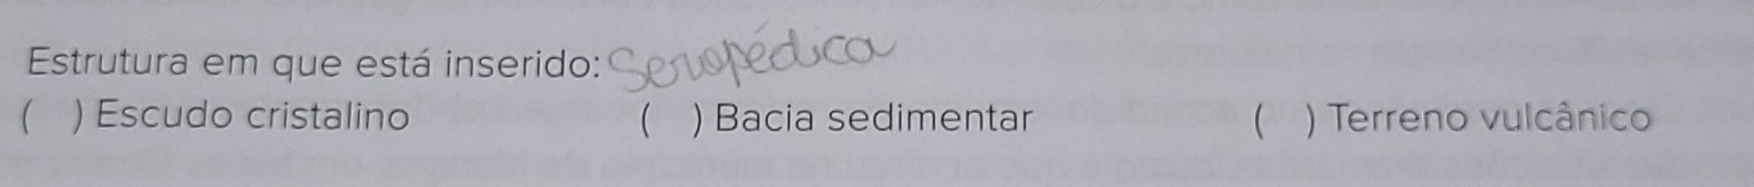 Estrutura em que está inserido: Seropédica
( ) Escudo cristalino ( ) Bacia sedimentar ( ) Terreno vulcânico